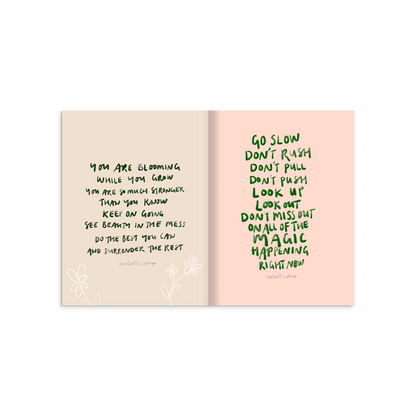 YOU ARE BLOOMING
WHILE YOU GROW
YOU ARE SO MUCH STRONGER
THAN YOU KNOW
KEEP ON GOING
SEE BEAUTY IN THE MESS
DO THE BEST YOU CAN
AND SURRENDER THE REST
GO SLOW
DON'T RUSH
DON'T PULL
DON'T PUSH
LOOK UP
LOOK OUT
DON'T MISS OUT
ON ALL OF THE
MAGIC
HAPPENING
RIGHT NOW